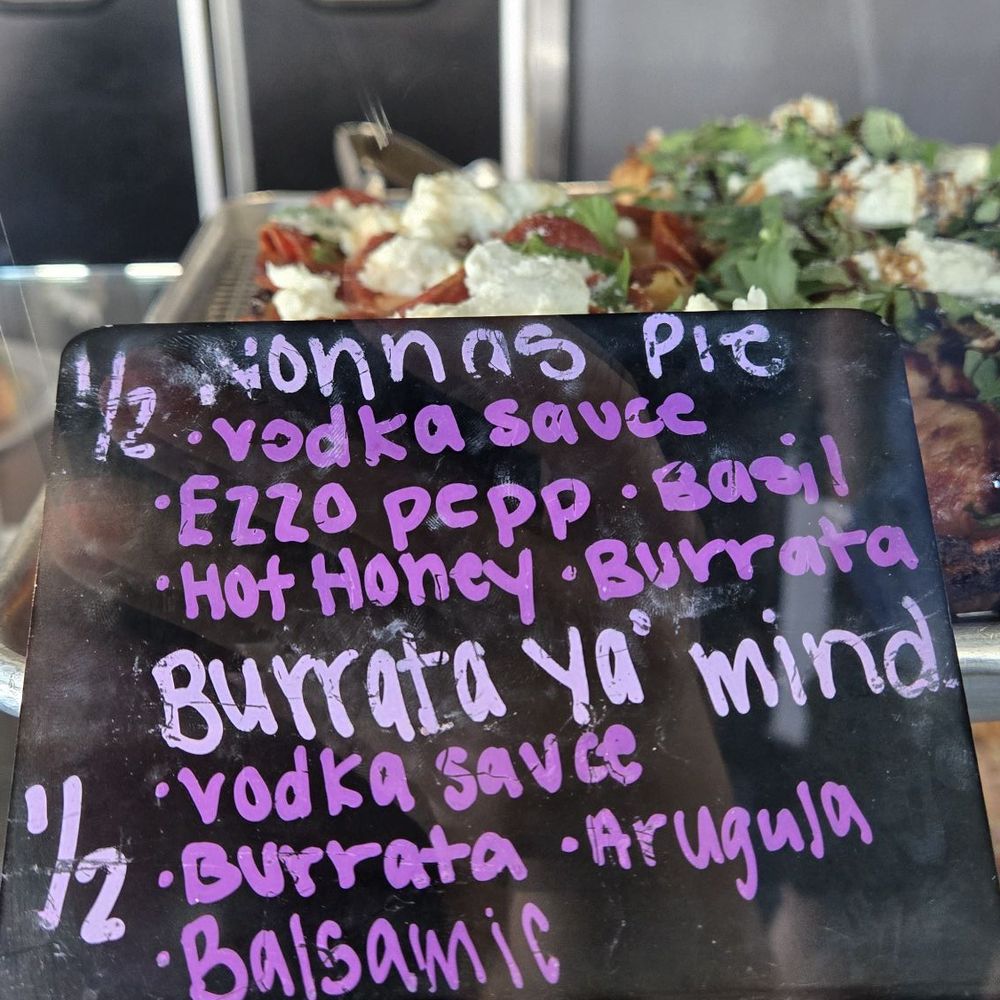 1/2 Nonnas Pie
• vodka sauce
• Ezzo pepp • Basil
• Hot Honey • Burrata
Burrata ya' mind
1/2 • vodka sauce
• Burrata • Arugula
• Balsamic